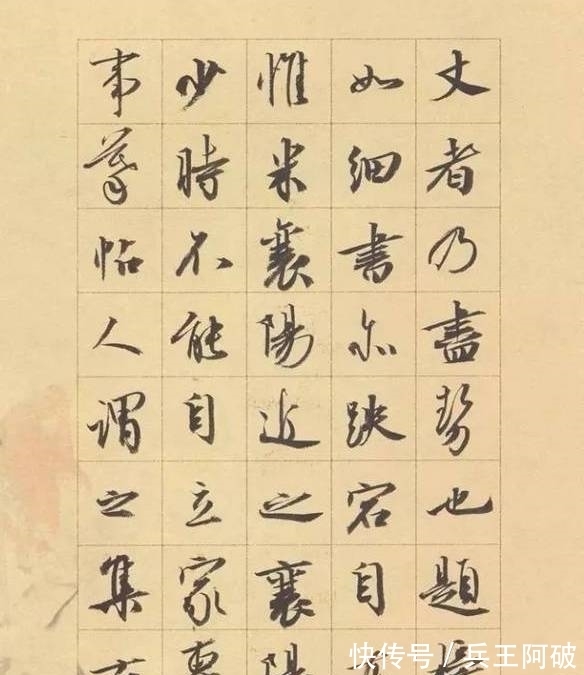 丈者乃盡勢也題榜
如細書亦跌宕自
惟米襄陽近之襄陽
少時不能自立家專
事摹帖人謂之集古
快传号/兵王阿破